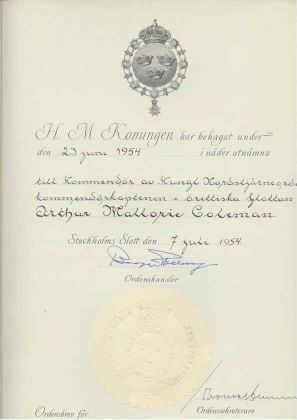 H. M. Konungen har behagat under
den 23 juni 1954 i nåder utnämna
till Kommendör av Kungl Nordstjärneorde
kommendörkaptenen i brittiska flottan
Arthur Mallorie Coleman.
Stockholms Slott den 7 juli 1954.
Ordenskansler
Ordensbrev för
Ordenssekreterare